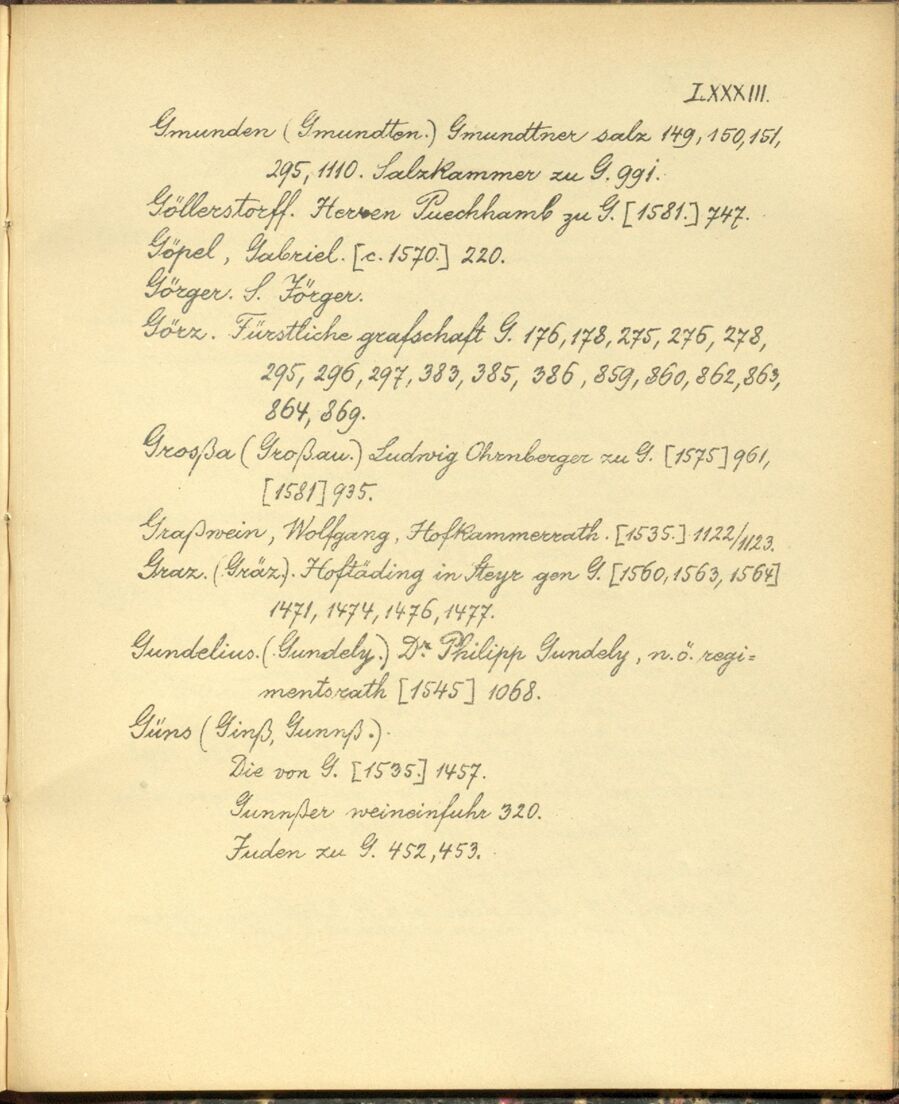 LXXXIII.
Gmunden (Gmundten.) Gmundtner salz 149, 150, 151,
295, 1110. Salzkammer zu G. 991.
Göllerstorff. Herren Puechhamb zu G. [1581.] 747.
Göpel, Gabriel. [c. 1570.] 220.
Görger. S. Jörger.
Görz. Fürstliche grafschaft G. 176, 178, 275, 276, 278,
295, 296, 297, 383, 385, 386, 859, 860, 862, 863,
864, 869.
Grosßa (Großau.) Ludwig Ohrnberger zu G. [1575] 961,
[1581] 935.
Graßwein, Wolfgang, Hofkammerrath. [1535.] 1122/1123.
Graz. (Gräz). Hoftäding in Steyr gen G. [1560, 1563, 1564]
1471, 1474, 1476, 1477.
Gundelius. (Gundely.) Dr. Philipp Gundely, n.ö. regi=
mentsrath [1545] 1068.
Güns (Ginß, Gunnß.).
Die von G. [1535.] 1457.
Gunnßer weineinfuhr 320.
Juden zu G. 452, 453.